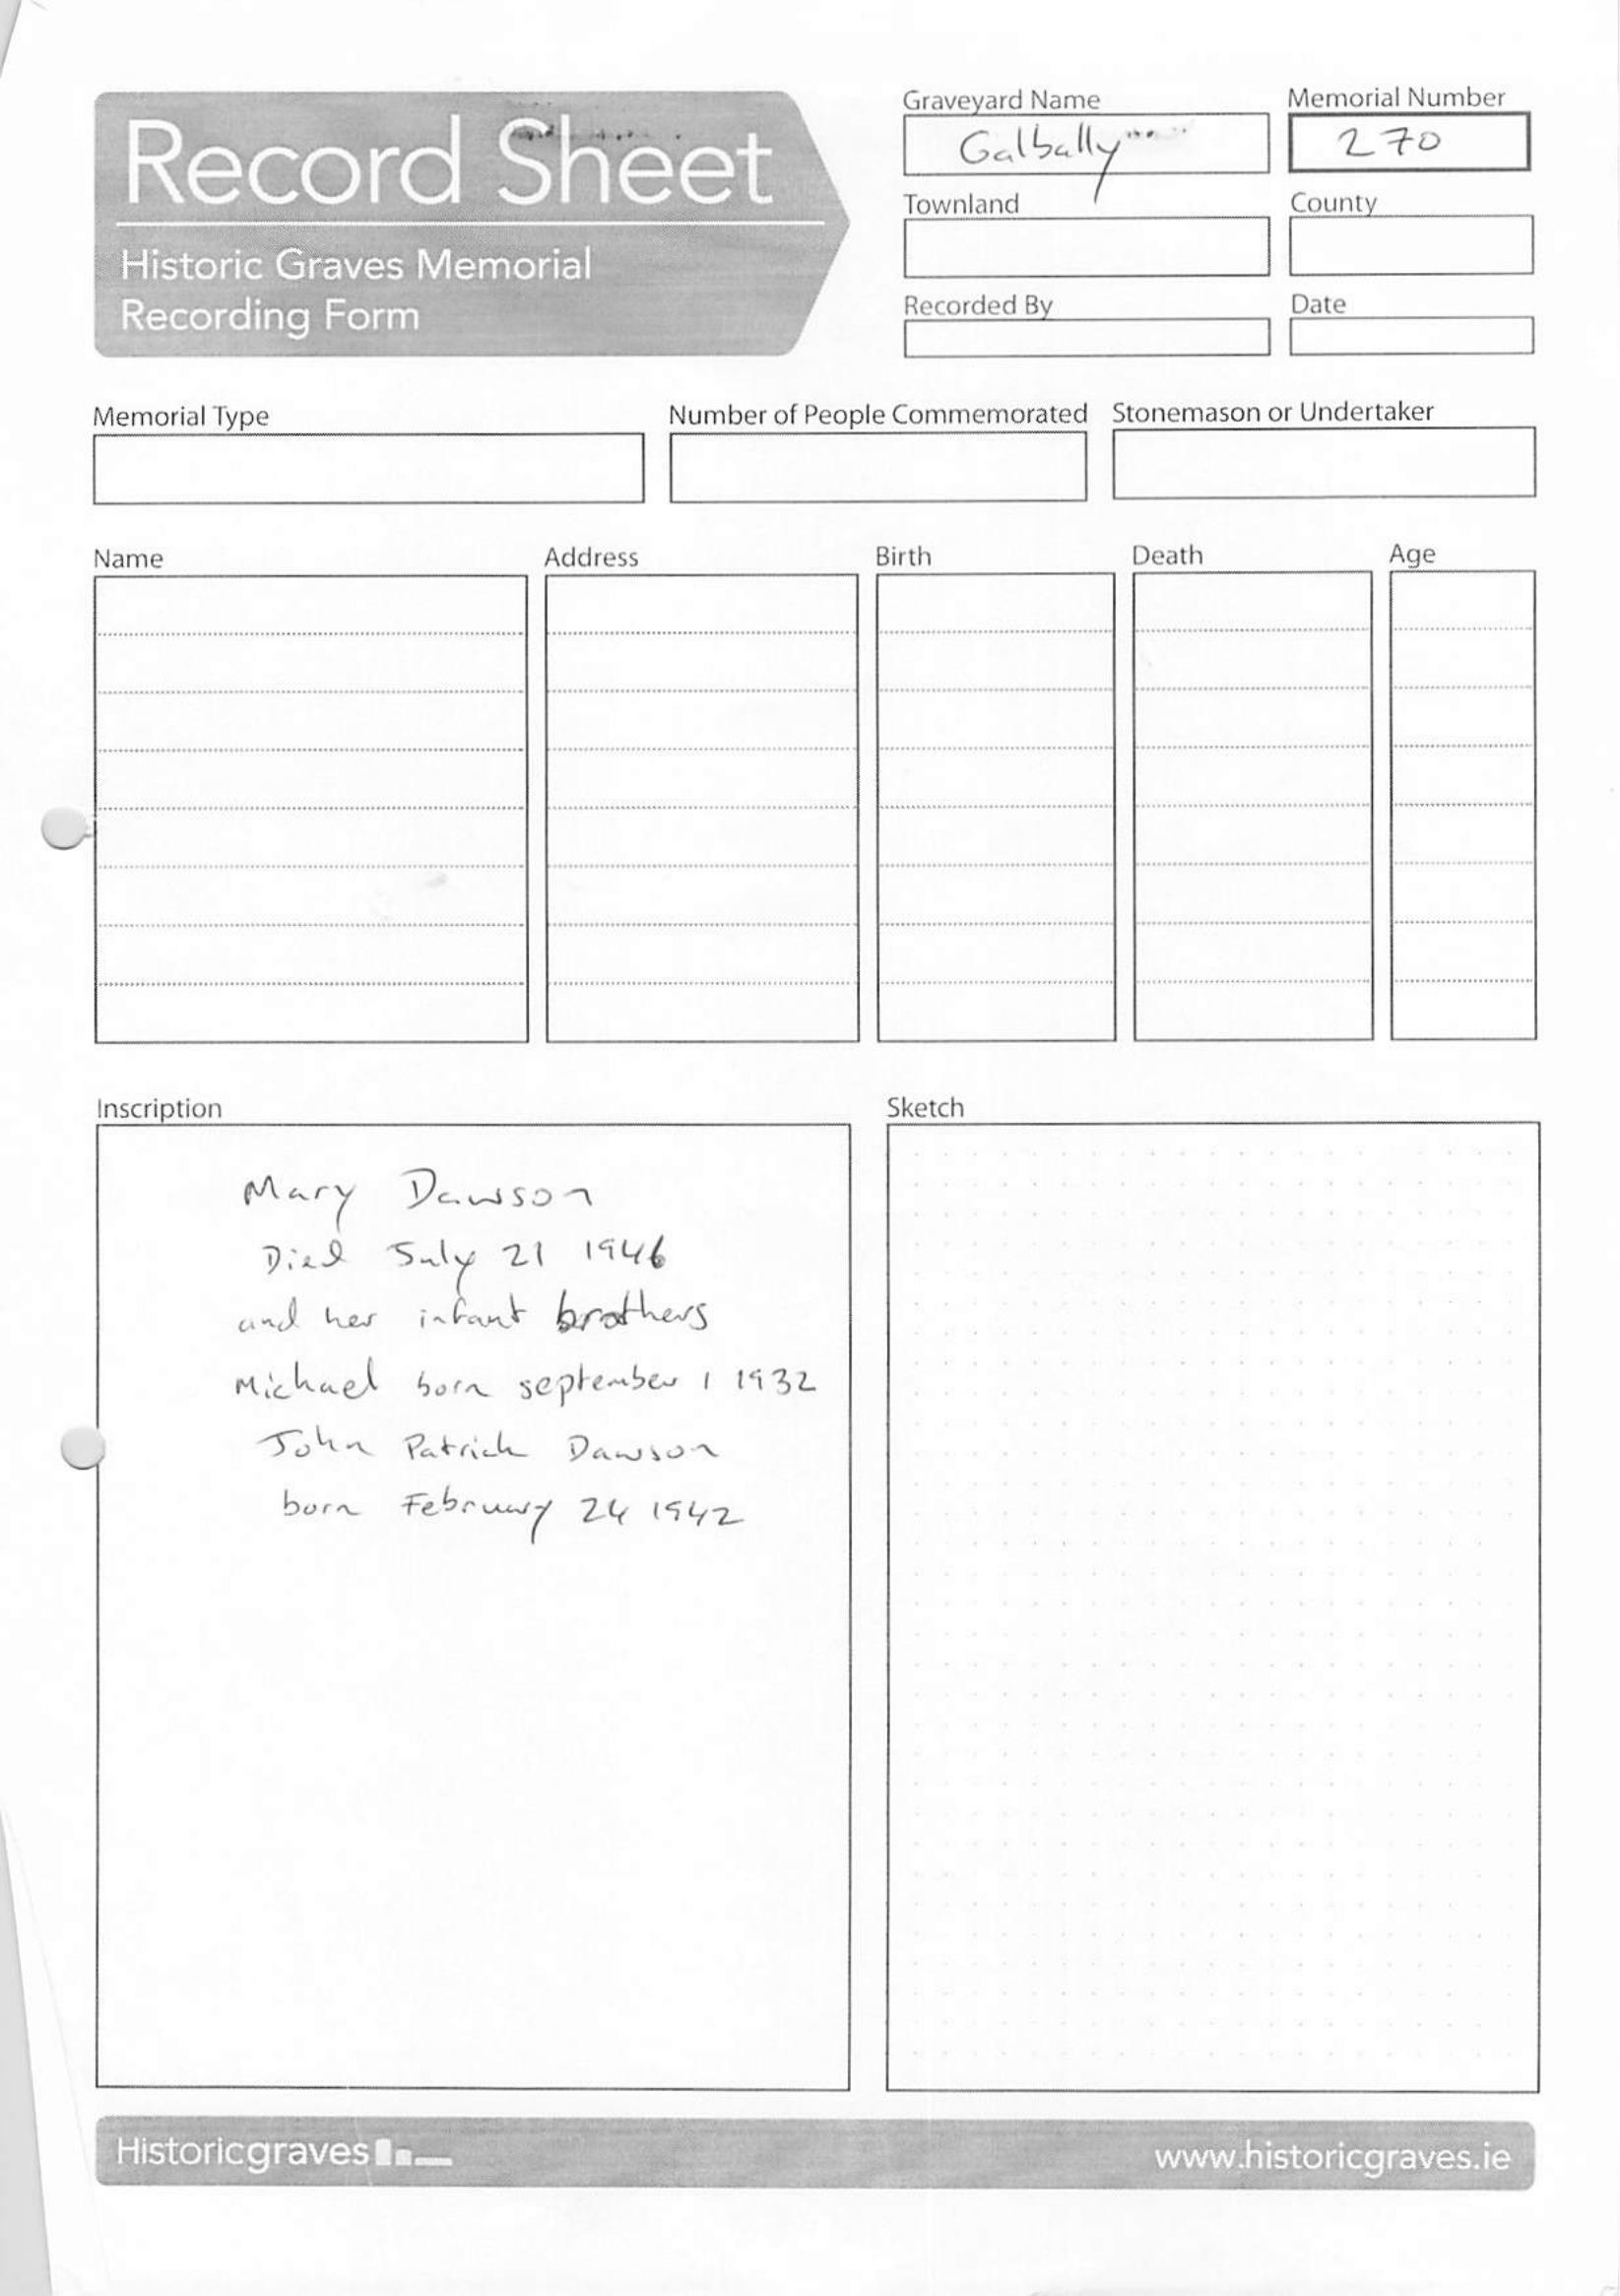 Record Sheet
Historic Graves Memorial
Recording Form
Graveyard Name
Galbally
Memorial Number
270
Townland
County
Recorded By
Date
Memorial Type
Number of People Commemorated
Stonemason or Undertaker
Name
Address
Birth
Death
Age
Inscription
Mary Dawson
Died July 21 1946
and her infant brothers
Michael born september 1 1932
John Patrick Dawson
born February 24 1942
Sketch
Historicgraves
www.historicgraves.ie